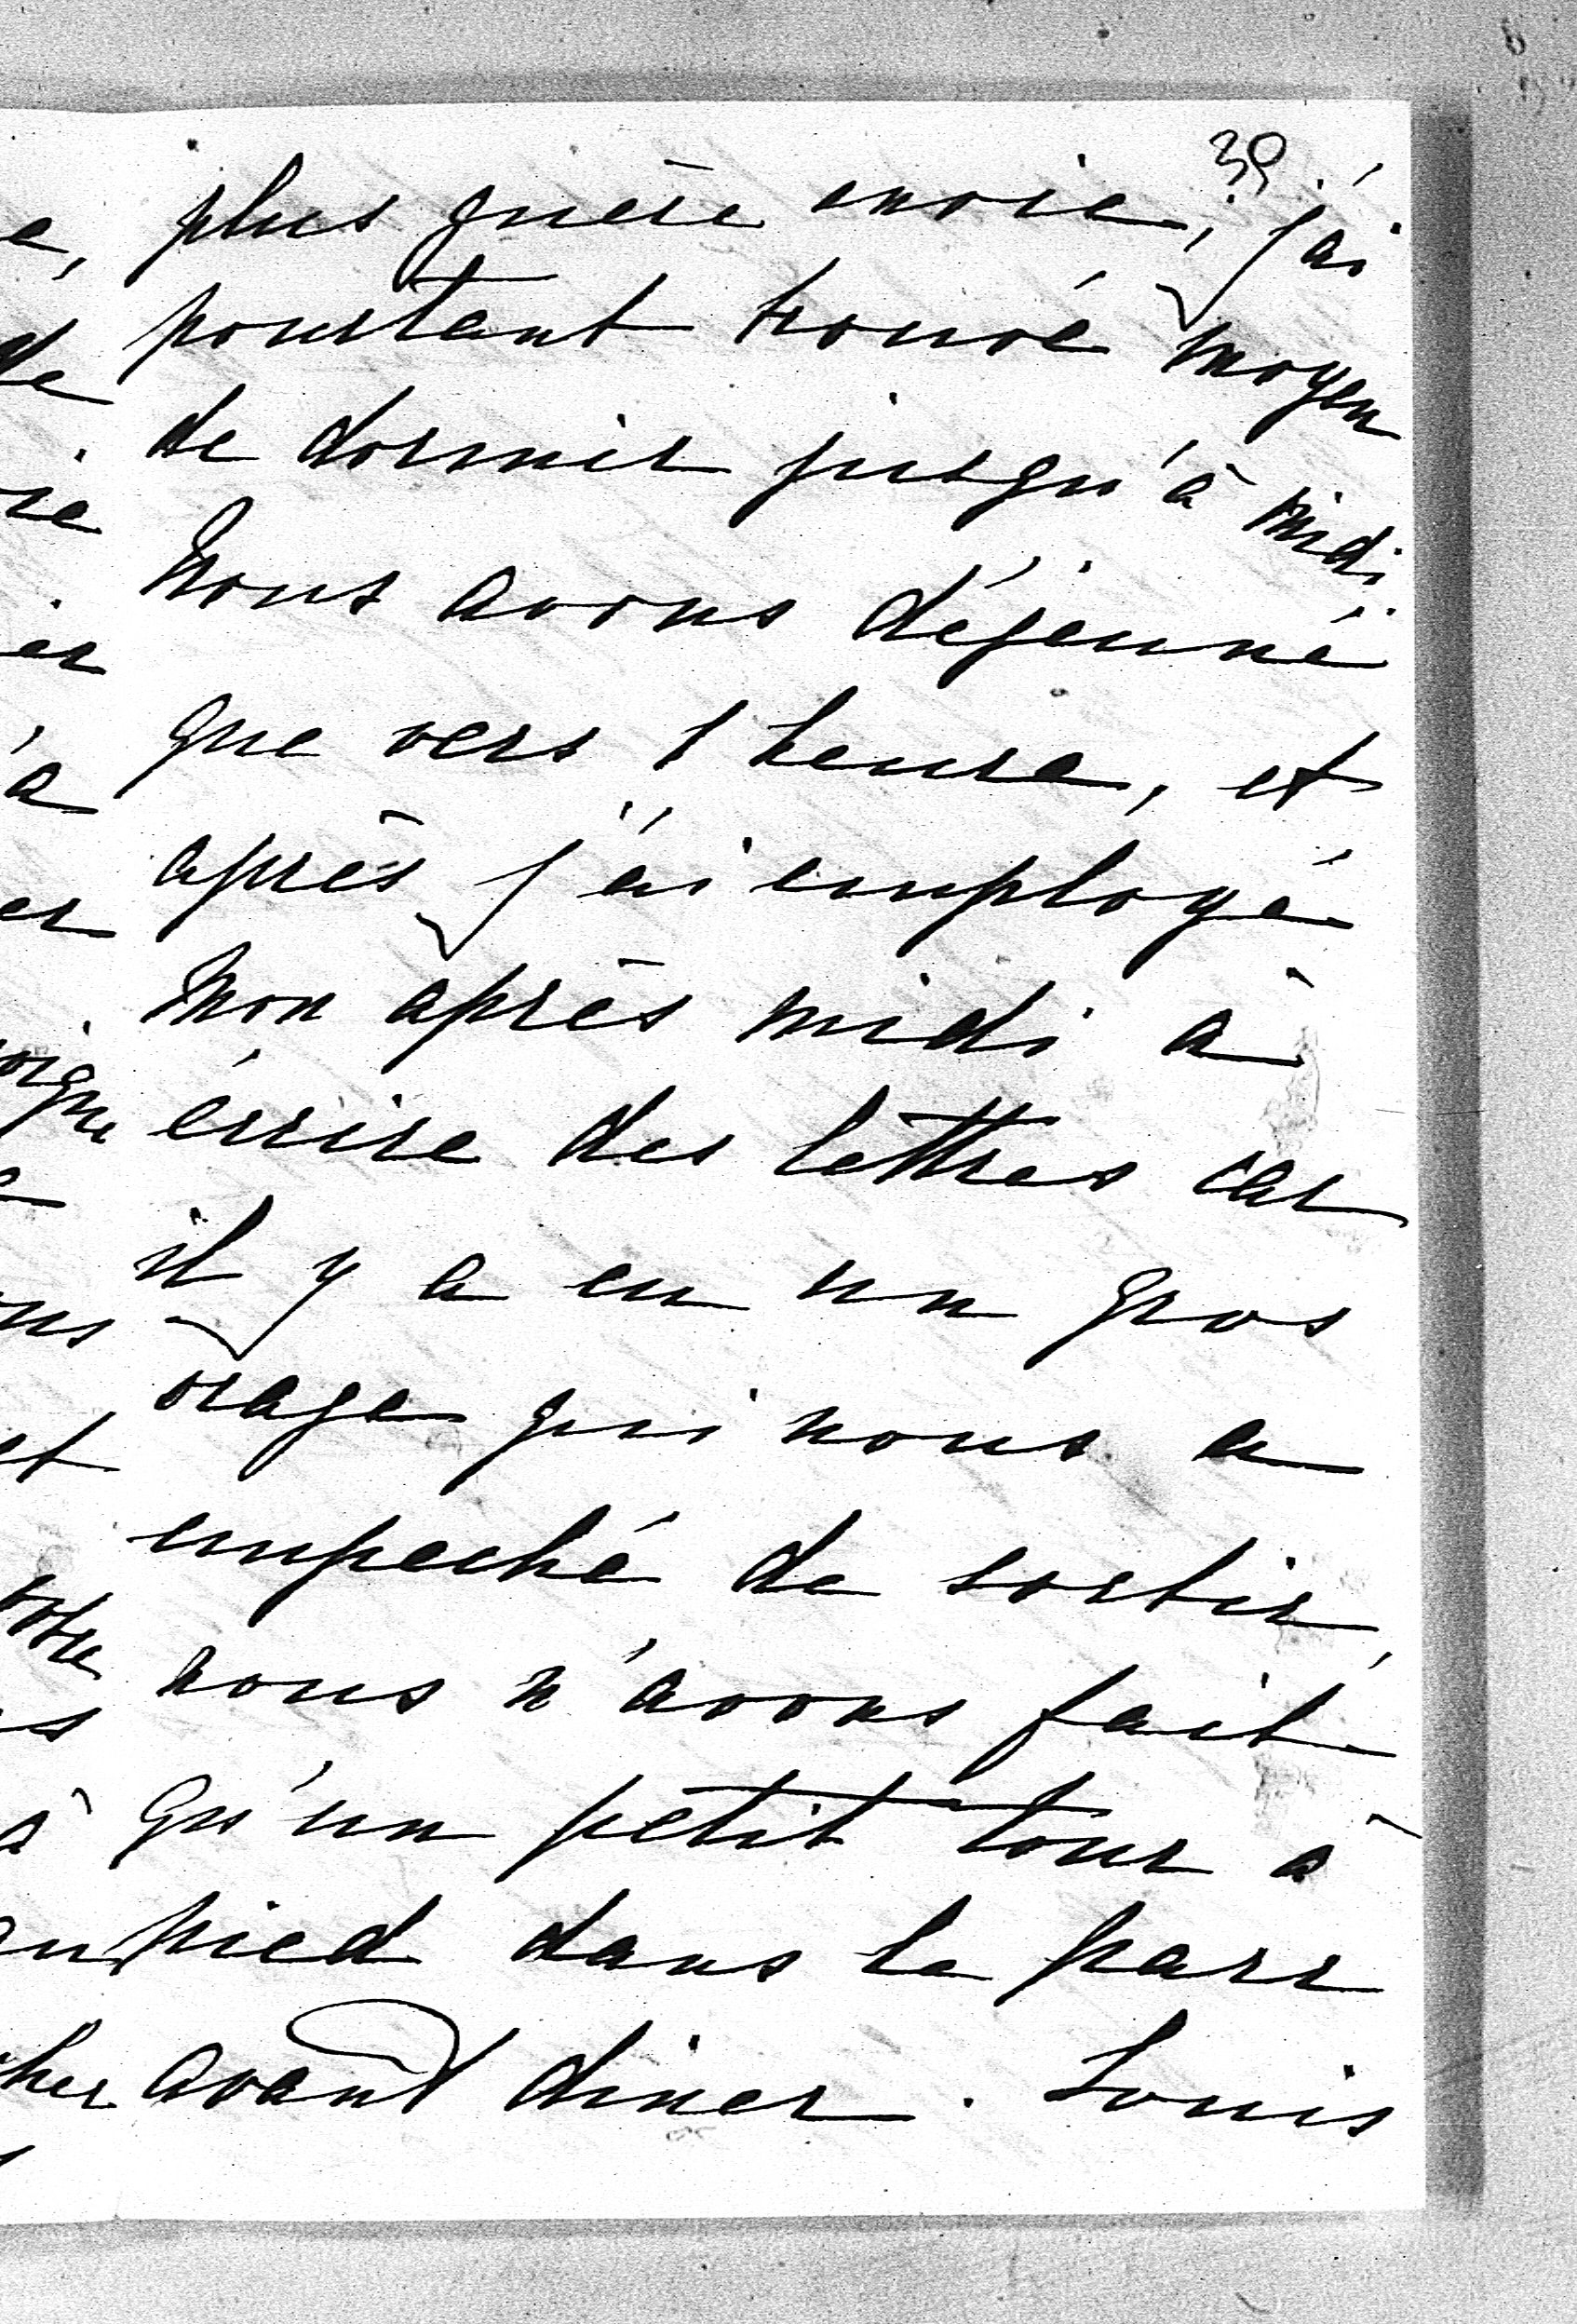 39
plus guère envie, j'ai
pourtant trouvé moyen
de dormir jusqu'à midi.
Nous avons déjeuné
que vers 1 heure, et
après j'ai employé
mon après midi à
écrire des lettres car
il y a eu un gros
orage qui nous a
empeché de sortir,
nous n'avons fait
qu'un petit tour à
pied dans le parc
avant diner. Louis